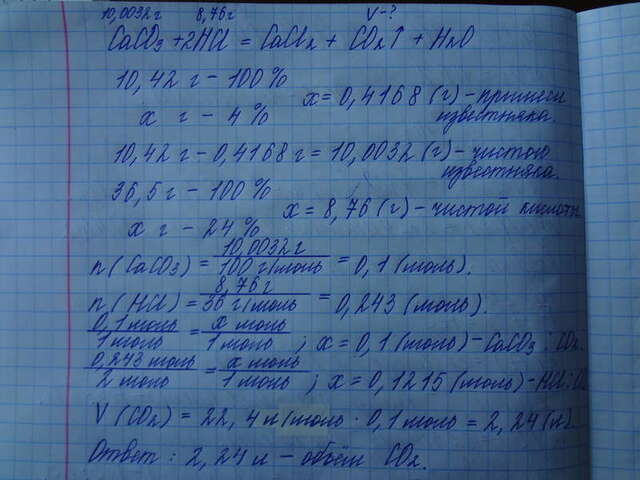 10,0032г 8,76г V-?
CaCO3 + 2HCl = CaCl2 + CO2↑ + H2O
10,42 г - 100 %
x = 0,4168 (г) - примеси
x г - 4 %
известняка.
10,42 г - 0,4168 г = 10,0032 (г) - чистого
известняка.
36,5 г - 100 %
x = 8,76 (г) - чистой кислоты
x г - 24 %
n (CaCO3) = 10,0032г / 100 г/моль = 0,1 (моль).
n (HCl) = 8,76г / 36 г/моль = 0,243 (моль).
0,1 моль / 1 моль = x моль / 1 моль ; x = 0,1 (моль) - CaCO3 : CO2.
0,243 моль / 2 моль = x моль / 1 моль ; x = 0,1215 (моль) - HCl :
V (CO2) = 22,4 л/моль · 0,1 моль = 2,24 (л).
Ответ : 2,24 л - объём CO2.